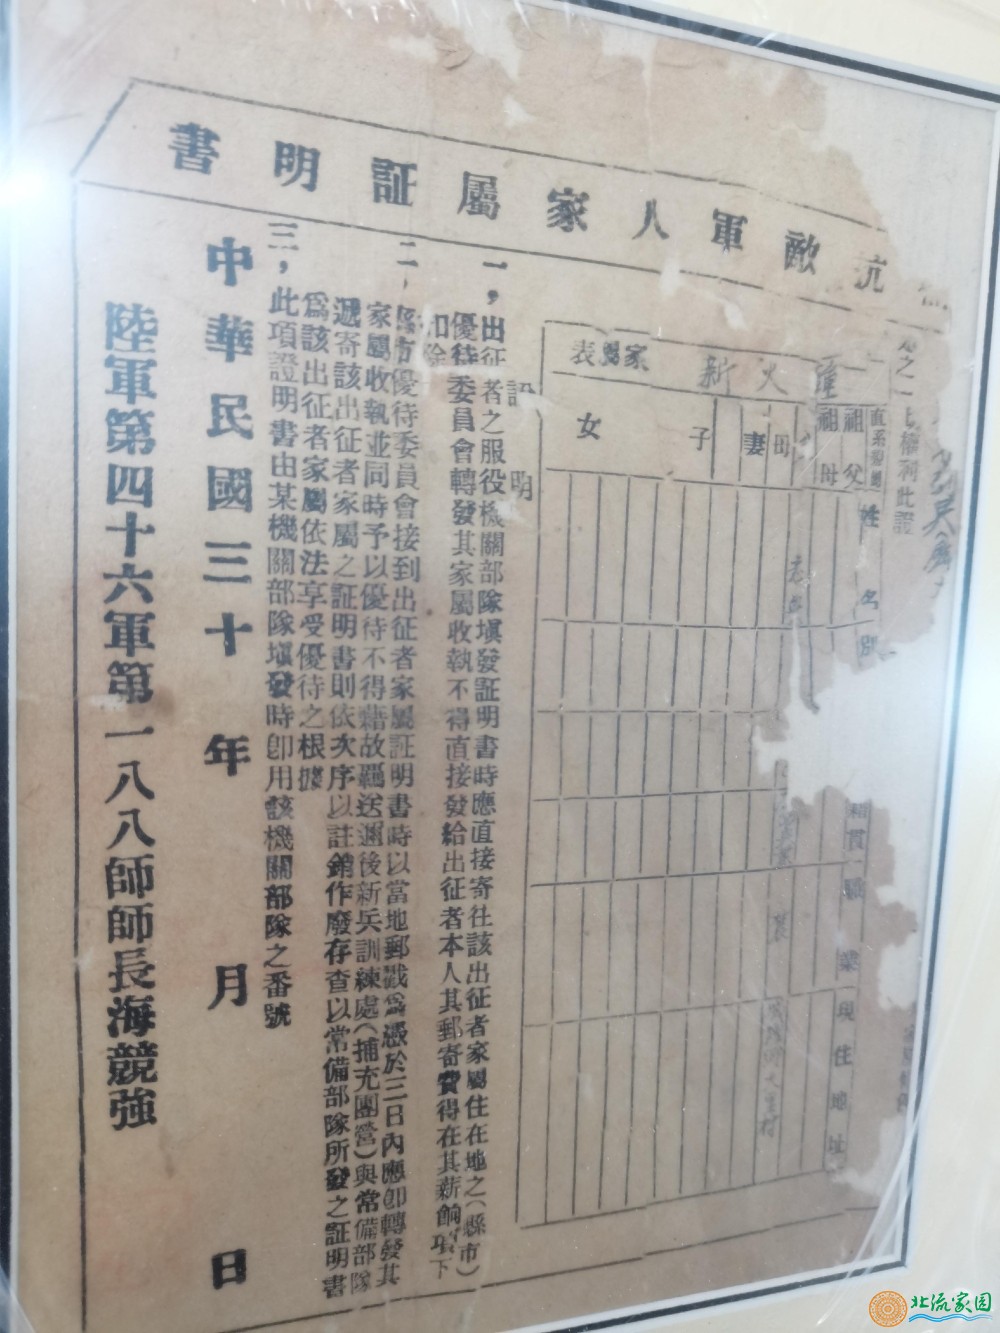 抗敵軍人家屬証明書
之
權利此證
家屬表
直系
姓名
別
籍貫
職業
現住地址
祖父
祖母
母
妻
子
女
說明
一，出征者之服役機關部隊塡發証明書時應直接寄往該出征者家屬住在地之（縣市）
優待委員會轉發其家屬收執不得直接發給出征者本人其郵寄費得在其薪餉項下
扣除
二，縣市優待委員會接到出征者家屬証明書時以當地郵戳爲憑於三日內應卽轉發其
家屬收執並同時予以優待不得藉故羈送邇後新兵訓練處（補充團營）與常備部隊
遞寄該出征者家屬之証明書則依次序以註銷作廢存查以常備部隊所發之証明書
爲該出征者家屬依法享受優待之根據
三，此項證明書由某機關部隊塡發時卽用該機關部隊之番號
中華民國三十年 月 日
陸軍第四十六軍第一八八師師長海競強
北流家园